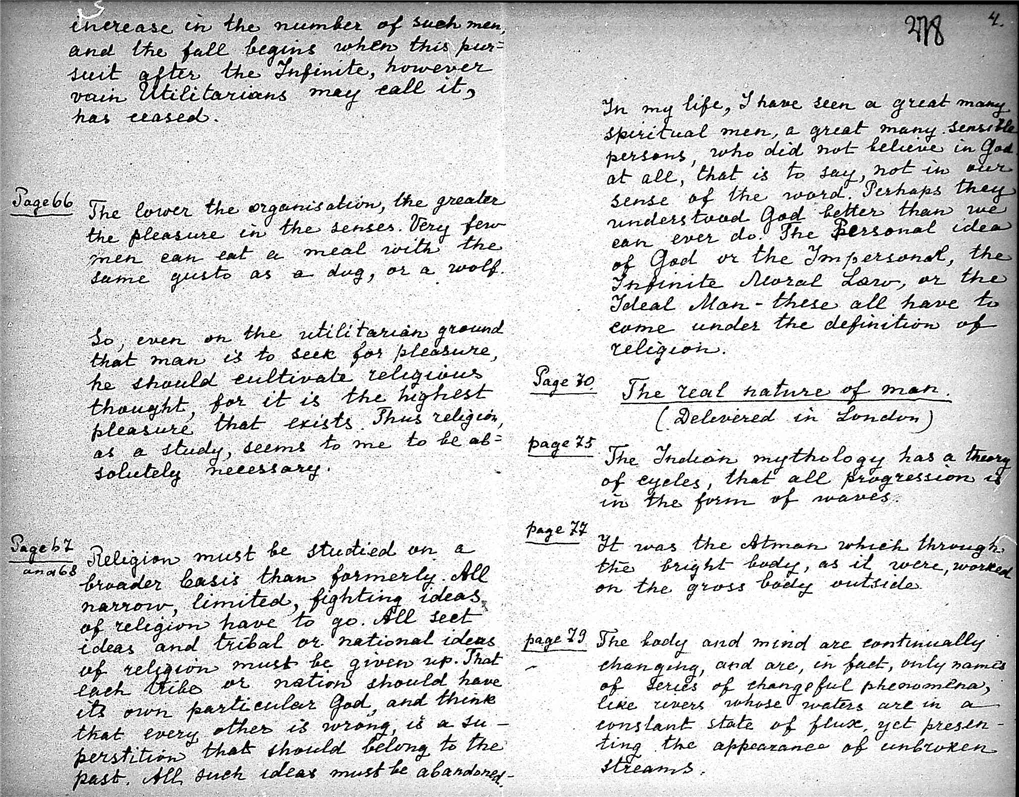 increase in the number of such men,
and the fall begins when this pur=
suit after the Infinite, however
vain Utilitarians may call it,
has ceased.
Page 66
The lower the organisation, the greater
the pleasure in the senses. Very few
men can eat a meal with the
same gusto as a dog, or a wolf.
So, even on the utilitarian ground
that man is to seek for pleasure,
he should cultivate religious
thought, for it is the highest
pleasure that exists. Thus religion,
as a study, seems to me to be ab=
solutely necessary.
Page 67
and 68
Religion must be studied on a
broader basis than formerly. All
narrow, limited, fighting ideas
of religion have to go. All sect
ideas and tribal or national ideas
of religion must be given up. That
each tribe or nation should have
its own particular God, and think
that every other is wrong, is a su-
perstition that should belong to the
past. All such ideas must be abandoned.
278
4.
In my life, I have seen a great many
spiritual men, a great many sensible
persons, who did not believe in God
at all, that is to say, not in our
sense of the word. Perhaps they
understood God better than we
can ever do. The Personal idea
of God or the Impersonal, the
Infinite Moral Law, or the
Ideal Man - these all have to
come under the definition of
religion.
Page 70
The real nature of man.
(Delivered in London)
page 75
The Indian mythology has a theory
of cycles, that all progression is
in the form of waves.
page 77
It was the Atman which through
the bright body, as it were, worked
on the gross body outside
page 79
The body and mind are continually
changing, and are, in fact, only names
of series of changeful phenomena,
like rivers whose waters are in a
constant state of flux, yet presen-
ting the appearance of unbroken
streams.